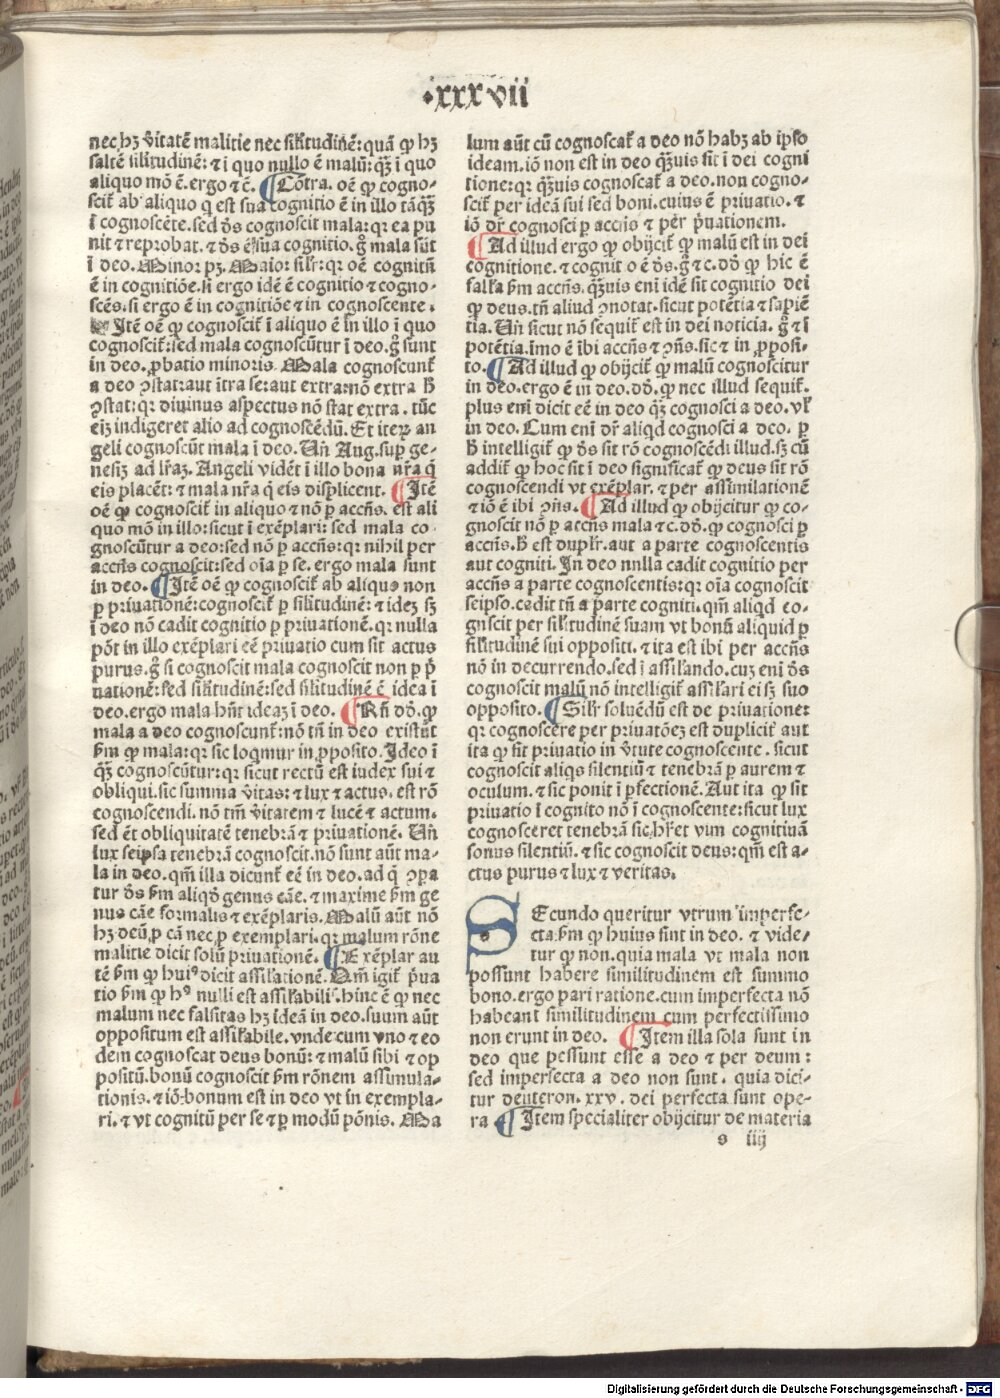 .xxxvii
nec hꝫ v̄itatē malitie nec silitudinē: quā ꝙ hꝫ
saltē silitudinē: ⁊ i quo nullo ē malū: qꝫ ī quo
aliquo mō ē. ergo ⁊ c̄. ¶ Cōtra. oē ꝙ cogno-
scit̄ ab aliquo q est sua cognitio ē in illo tāqꝫ
ī cognoscēte. sed d̄s cognoscit mala: qr ea pu
nit ⁊ reprobat. ⁊ d̄s ē sua cognitio. g̃ mala sūt
ī deo. Minor pꝫ. Maior silr: qr oē cognitū
ē in cognitiōe. si ergo idē ē cognitio ⁊ cogno-
scēs. si ergo ē in cognitiōe ⁊ in cognoscente.
Itē oē ꝙ cognoscit̄ ī aliquo ē in illo ī quo
cognoscit̄: sed mala cognoscūtur ī deo. g̃ sunt
in deo. ꝓbatio minoris. Mala cognoscunt̄
a deo ꝯstat: aut ītra se: aut extra: nō extra h̄
ꝯstat: qr diuinus aspectus nō stat extra. tūc
eiꝫ indigeret alio ad cognoscēdū. Et iteꝝ an
geli cognoscūt mala ī deo. Uñ Aug. sup̱ ge-
nesiꝫ ad lr̄aꝫ. Angeli vidēt ī illo bona nr̄a q̄
eis placēt: ⁊ mala nr̄a q̄ eis displicent. ¶ Itē
oē ꝙ cognoscit̄ in aliquo ⁊ nō ꝑ accñs. est ali
quo mō in illo: sicut ī exēplari: sed mala co-
gnoscūtur a deo: sed nō ꝑ accñs: qr nihil per
accñs cognoscit: sed oīa ꝑ se. ergo mala sunt
in deo. ¶ Itē oē ꝙ cognoscit̄ ab aliquo non
ꝑ priuationē: cognoscit̄ ꝑ silitudinē: ⁊ ideꝫ sꝫ
ī deo nō cadit cognitio ꝑ priuationē. qr nulla
pōt in illo exēplari eē priuatio cum sit actus
purus. g̃ si cognoscit mala cognoscit non ꝑ p̄
uationē: sed silitudinē: sed silitudinē ē idea ī
deo. ergo mala hn̄t ideaꝫ ī deo. ¶ Rñ dō. ꝙ
mala a deo cognoscunt̄: nō tn̄ in deo existūt
ẜm ꝙ mala: qr sic loqmur in ꝓposito. Ideo ī
qꝫ cognoscūtur: qr sicut rectū est iudex sui ⁊
obliqui. sic summa v̄itas: ⁊ lux ⁊ actus. est rō
cognoscendi. nō tm̄ v̄itatem ⁊ lucē ⁊ actum.
sed ēt obliquitatē tenebrā ⁊ priuationē. Uñ
lux seipsa tenebrā cognoscit. nō sunt aūt ma-
la in deo. qm̄ illa dicunt̄ eē in deo. ad q̄ ꝯpa
tur d̄s ẜm aliqd̄ genus cāe. ⁊ maxime ẜm ge
nus cāe formalis ⁊ exēplaris. Malū aūt nō
hꝫ deū ꝑ cā nec ꝑ exemplari. qr malum rōne
malitie dicit solū priuationē. ¶ Exēplar au
tē ẜm ꝙ huiꝰ dicit assilationē. Qm̄ igit̄ p̄ua
tio ẜm ꝙ hꝰ nulli est assilabilis. hinc ē ꝙ nec
malum nec falsitas hꝫ ideā in deo. suum aūt
oppositum est assilabile. vnde cum vno ⁊ eo
dem cognoscat deus bonū: ⁊ malū sibi ⁊ op
positū. bonū cognoscit ẜm rōnem assimula-
tionis. ⁊ iō bonum est in deo vt in exempla-
ri. ⁊ vt cognitū per se ⁊ ꝑ modū pōnis. Ma
lum aūt cū cognoscat̄ a deo nō habꝫ ab ipso
ideam. iō non est in deo qꝫuis sit ī dei cogni
tione: qr qꝫuis cognoscat̄ a deo. non cogno-
scit̄ per ideā sui sed boni. cuius ē priuatio. ⁊
iō dr̄ cognosci ꝑ accñs ⁊ per p̄uationem.
¶ Ad illud ergo ꝙ obijcit̄ ꝙ malū est in dei
cognitione. ⁊ cognit o ē d̄s. g̃ ⁊ c. dō ꝙ hic ē
falla ẜm accñs. qꝫuis eni idē sit cognitio dei
ꝙ deus. tñ aliud ꝯnotat. sicut potētia ⁊ sapiē
tia. Uñ sicut nō sequit̄ est in dei noticia. g̃ ⁊ ī
potētia. imo ē ibi accñs ⁊ ꝯñs. sic ⁊ in ꝓposi-
to. ¶ Ad illud ꝙ obijcit̄ ꝙ malū cognoscitur
in deo. ergo ē in deo. dō. ꝙ nec illud sequit̄.
plus eni dicit eē in deo qꝫ cognosci a deo. vl̄
in deo. Cum eni dr̄ aliqd cognosci a deo. ꝑ
h̄ intelligit̄ ꝙ d̄s sit rō cognoscēdi illud. sꝫ cū
addit̄ ꝙ hoc sit ī deo significat̄ ꝙ deus sit rō
cognoscendi vt exēplar. ⁊ per assimilationē
⁊ iō ē ibi ꝯñs. ¶ Ad illud ꝙ obijcitur ꝙ co-
gnoscit nō ꝑ accñs mala ⁊ c. dō. ꝙ cognosci ꝑ
accñs. h̄ est duplr̄. aut a parte cognoscentis
aut cogniti. In deo nnlla cadit cognitio per
accñs a parte cognoscentis: qr oīa cognoscit
seipso. cadit tñ a parte cogniti. qm̄ aliqd co-
gnscit per silitudinē suam vt bonū aliquid ꝑ
silitudinē sui oppositi. ⁊ ita est ibi per accñs
nō in decurrendo. sed ī assilando. cuꝫ eni d̄s
cognoscit malū nō intelligit̄ assilari ei sꝫ suo
opposito. ¶ Silr soluēdū est de priuatione:
qr cognoscere per priuatōeꝫ est duplicit̄ aut
ita ꝙ sit priuatio in v̄tute cognoscente. sicut
cognoscit aliqs silentiū ⁊ tenebrā ꝑ aurem ⁊
oculum. ⁊ sic ponit ī ꝑfectionē. Aut ita ꝙ sit
priuatio ī cognito nō ī cognoscente: sicut lux
cognosceret tenebrā si cḣret vim cognitiuā
sonus silentiū. ⁊ sic cognoscit deus: qm̄ est a-
ctus purus ⁊ lux ⁊ veritas.
SEcundo queritur vtrum imperfe-
cta ẜm ꝙ huius sint in deo. ⁊ vide-
tur ꝙ non. quia mala vt mala non
possunt habere similitudinem est summo
bono. ergo pari ratione. cum imperfecta nō
habeant similitudinem cum perfectissimo
non erunt in deo. ¶ Item illa sola sunt in
deo que possunt esse a deo ⁊ per deum:
sed imperfecta a deo non sunt. quia dici-
tur deuteron. xxv. dei perfecta sunt ope-
ra ¶ Item specialiter obijcitur de materia
s iiij
Digitalisierung gefördert durch die Deutsche Forschungsgemeinschaft - DFG